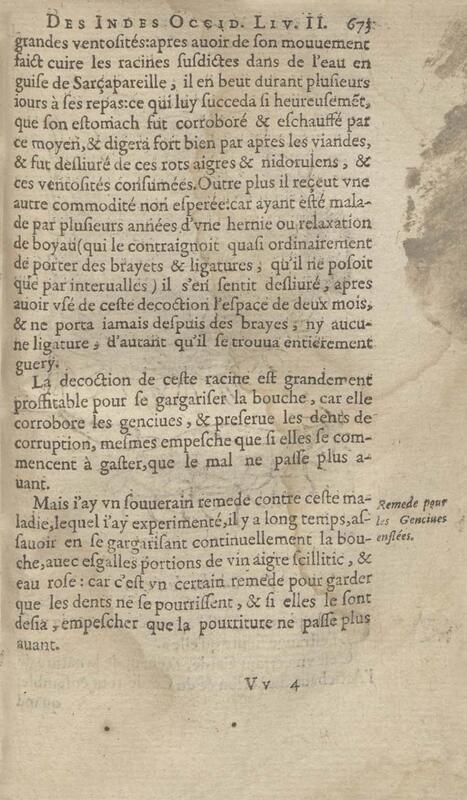 DES INDES OCCID. LIV. II. 673
grandes ventosités:apres auoir de son mouuement
faict cuire les racines susdictes dans de l'eau en
guise de Sarçapareille, il en beut durant plusieurs
iours à ses repas:ce qui luy succeda si heureusemẽt,
que son estomach fut corroboré & eschauffé par
ce moyen,& digera fort bien par apres les viandes,
& fut desliuré de ces rots aigres & nidorulens, &
ces ventosités consumées.Outre plus il reçeut vne
autre commodité non esperée:car ayant esté mala-
de par plusieurs années d'vne hernie ou relaxation
de boyau(qui le contraignoit quasi ordinairement
de porter des brayets & ligatures, qu'il ne posoit
que par interualles) il s'en sentit desliuré, apres
auoir vsé de ceste decoction l'espace de deux mois,
& ne porta iamais despuis des brayes, ny aucu-
ne ligature, d'autant qu'il se trouua entierement
guery.
La decoction de ceste racine est grandement
proffitable pour se gargariser la bouche, car elle
corrobore les genciues, & preserue les dents de
corruption, mesmes empesche que si elles se com-
mencent à gaster,que le mal ne passe plus a-
uant.
Mais i'ay vn souuerain remede contre ceste ma-
ladie,lequel i'ay experimenté,il y a long temps,as-
sauoir en se gargarisant continuellement la bou-
che,auec esgalles portions de vin aigre scillitic, &
eau rose: car c'est vn certain remede pour garder
que les dents ne se pourrissent, & si elles le sont
desia, empescher que la pourriture ne passe plus
auant.
Remede pour
les Genciues
enflées.
Vv 4